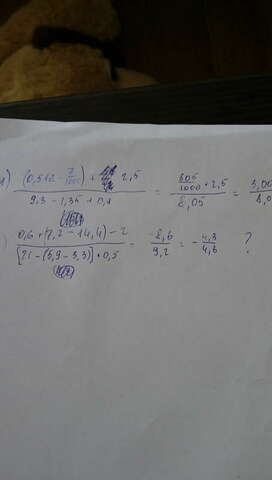 1) (0,512 - 7/1000) + 2,5 / 9,3 - 1,35 + 0,1 = 505/1000 + 2,5 / 8,05 = 3,00
) 0,6 + (7,2 - 14,4) - 2 / [21 - (5,9 - 3,3)] • 0,5 = -8,6 / 9,2 = - 4,3 / 4,6 ?